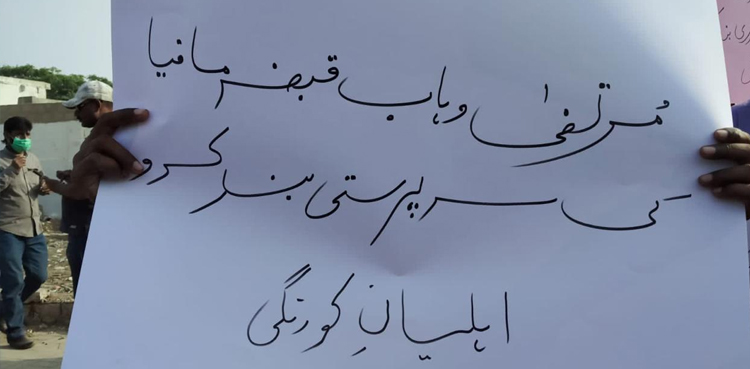 مُرتضیٰ وہاب قبضہ مافیا
کی سرپرستی بند کرو
اہلیانِ کورنگی